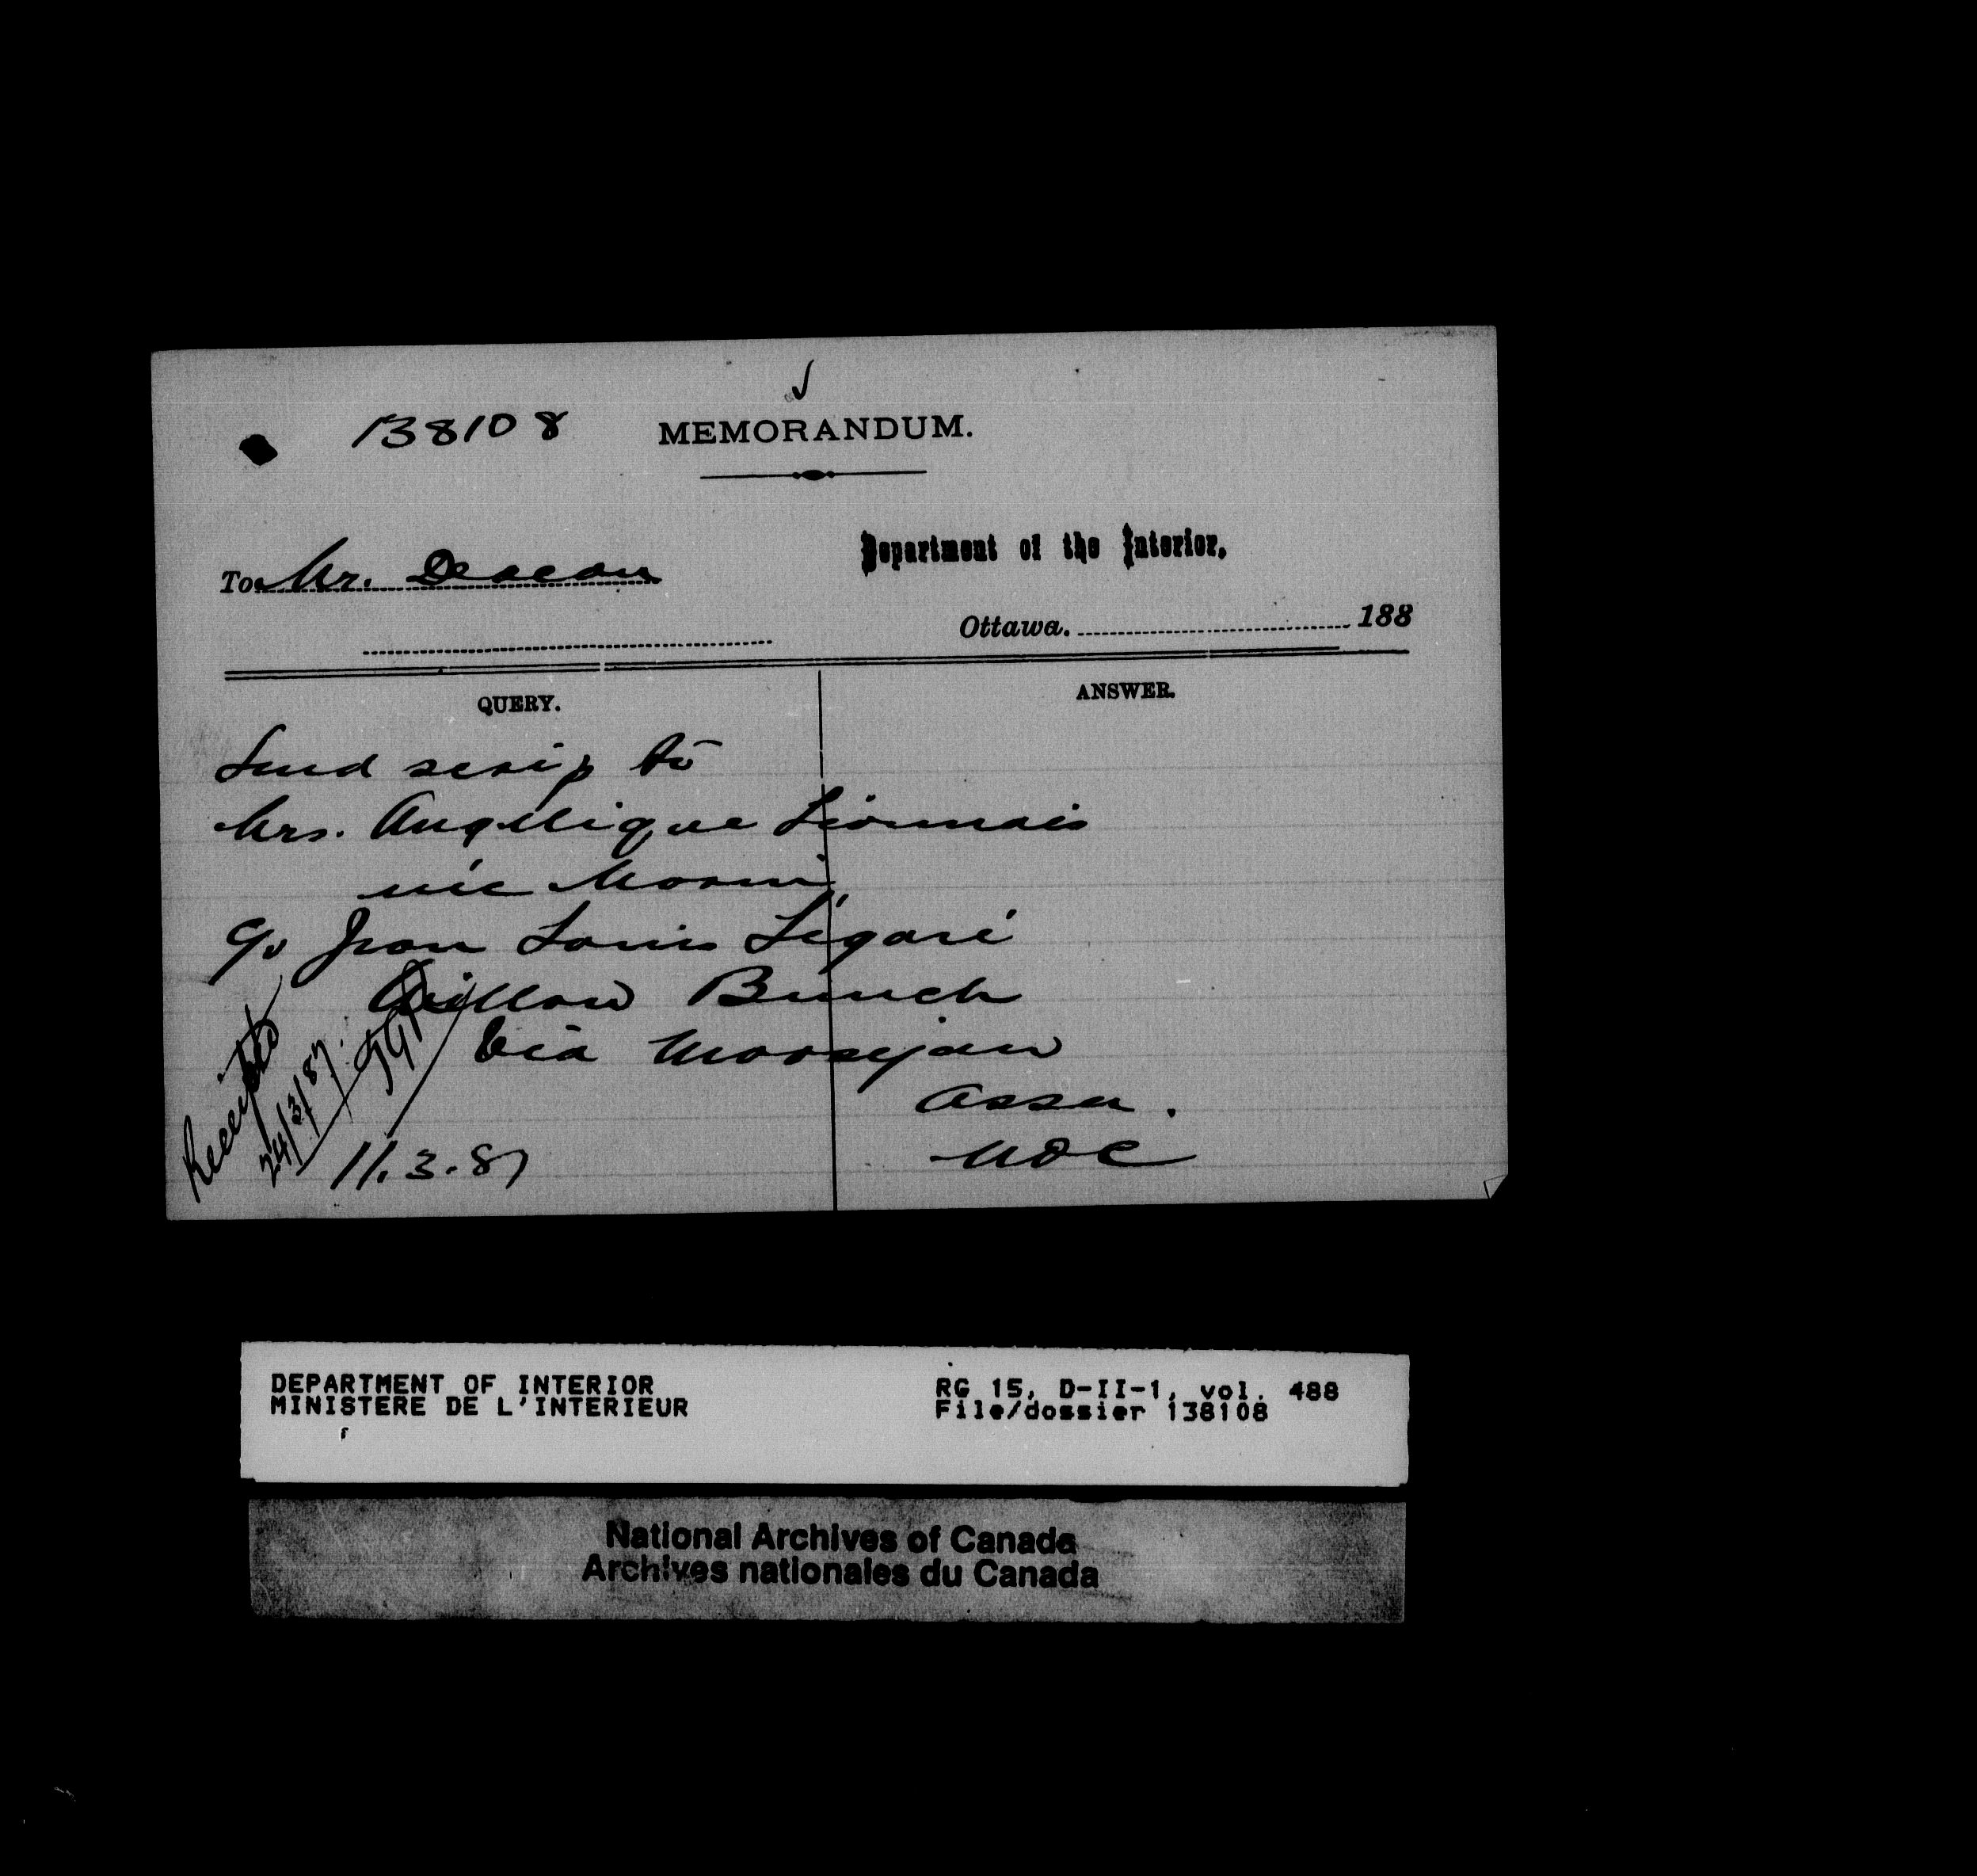 138108
MEMORANDUM.
To Mr. Deacon
Department of the Interior.
Ottawa. 188
QUERY.
ANSWER.
Send scrip to
Mrs. Angelique Lionnais
née Morin
c/o Jean Louis Légaré
Willow Bunch
Via Moosejaw
Assa.
11.3.87
Receipts
24/3/87
DEPARTMENT OF INTERIOR
MINISTERE DE L'INTERIEUR
RG 15, D-II-1, vol. 488
File/dossier 138108
National Archives of Canada
Archives nationales du Canada